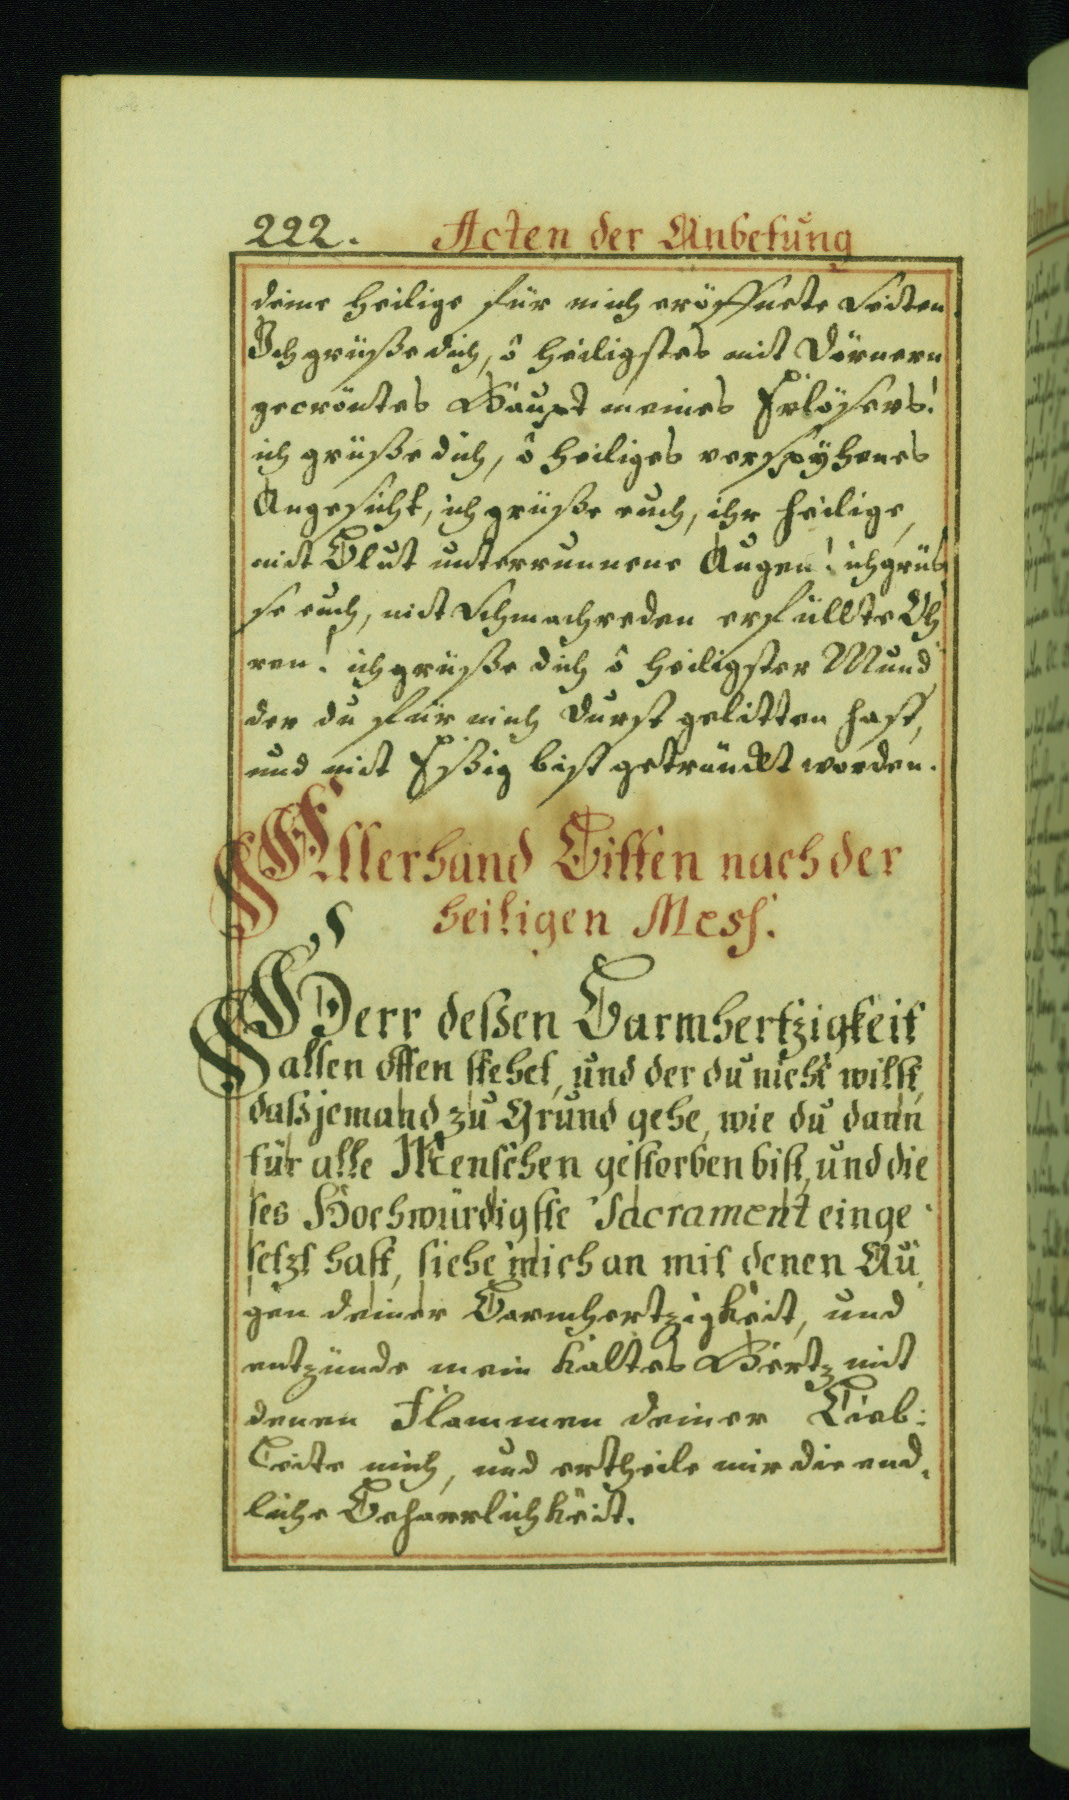 222. Acten der Anbetung
deine heilige für mich eröffnete Seiten.
Ich grüße dich, ô heiligstes mit Dörnern
gecröntes Haupt meines Erlösers!
ich grüße dich, ô heiliges verspyhenes
Angesicht, ich grüße euch, ihr heilige,
mit Blut unterrunnene Augen! ich grüs
se euch, mit Schmachreden erfüllte Oh
ren! ich grüße dich ô heiligster Mund
der du für mich Durst gelitten hast,
und mit Eßig bist getränckt worden.
Allerhand Bitten nach der
heiligen Mess.
O Herr deßen Barmhertzigkeit
allen offen stehet, und der du nicht wilst,
daß jemand zu Grund gehe, wie du dann
für alle Menschen gestorben bist, und die
ses Hochwürdigste Sacrament einge
setzt hast, siehe mich an mit denen Au
gen deiner Barmhertzigkeit, und
entzünde mein kaltes Hertz mit
denen Flammen deiner Lieb:
Leite mich, und ertheile mir die end
liche Beharrlichkeit.